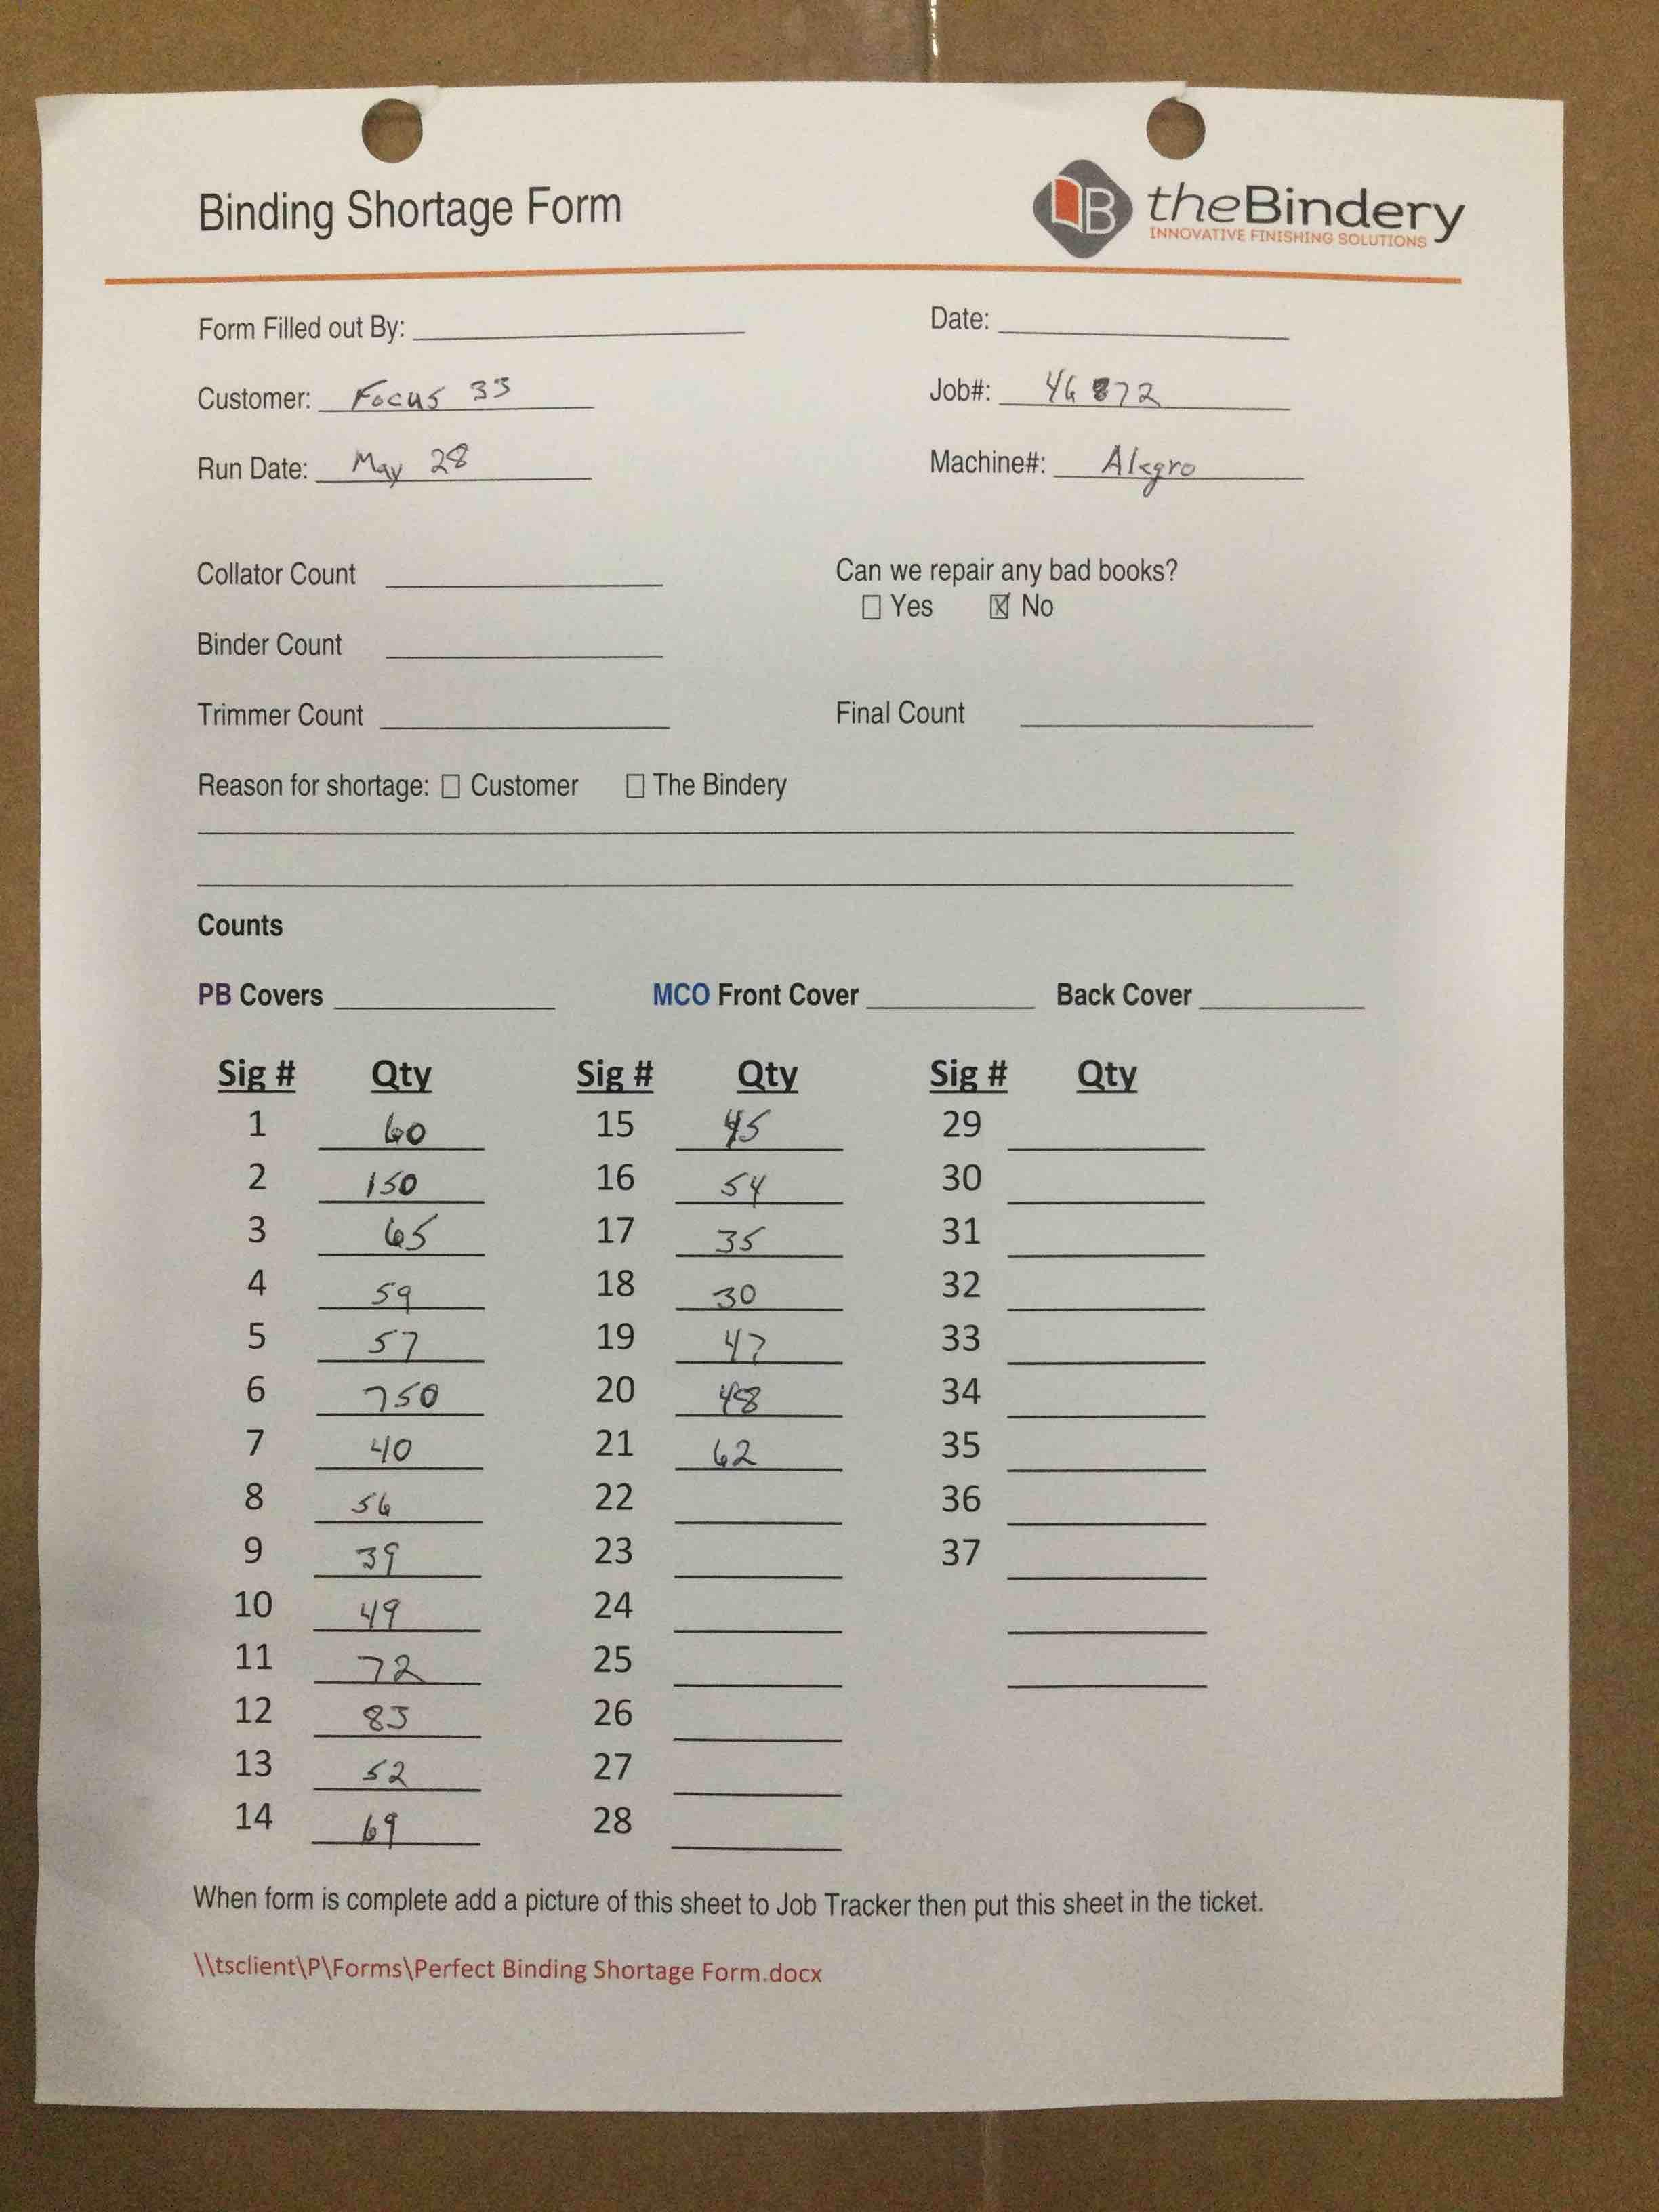 Binding Shortage Form
B theBindery
INNOVATIVE FINISHING SOLUTIONS
Form Filled out By: Date:
Customer: Focus 33 Job#: 46872
Run Date: May 28 Machine#: Alegro
Collator Count Can we repair any bad books?
☐ Yes ☒ No
Binder Count
Trimmer Count Final Count
Reason for shortage: ☐ Customer ☐ The Bindery
Counts
PB Covers MCO Front Cover Back Cover
Sig # Qty Sig # Qty Sig # Qty
1 60 15 45 29
2 150 16 54 30
3 65 17 35 31
4 59 18 30 32
5 57 19 47 33
6 750 20 48 34
7 40 21 62 35
8 56 22 36
9 39 23 37
10 49 24
11 72 25
12 83 26
13 52 27
14 69 28
When form is complete add a picture of this sheet to Job Tracker then put this sheet in the ticket.
\\tsclient\P\Forms\Perfect Binding Shortage Form.docx